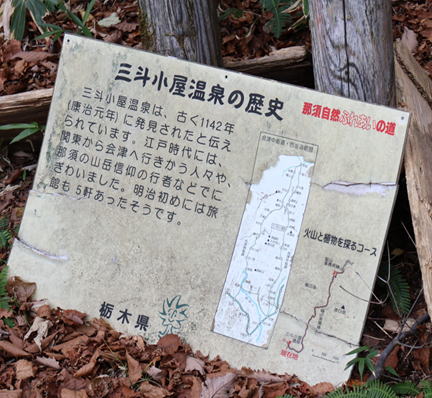 三斗小屋温泉の歴史
那須自然ふれあいの道
三斗小屋温泉は、古く1142年
(康治元年)に発見されたと伝え
られています。江戸時代には、
関東から会津へ行きかう人々や、
那須の山岳信仰の行者などでに
ぎわいました。明治初めには旅
館も5軒あったそうです。
火山と植物を探るコース
現在地
栃木県